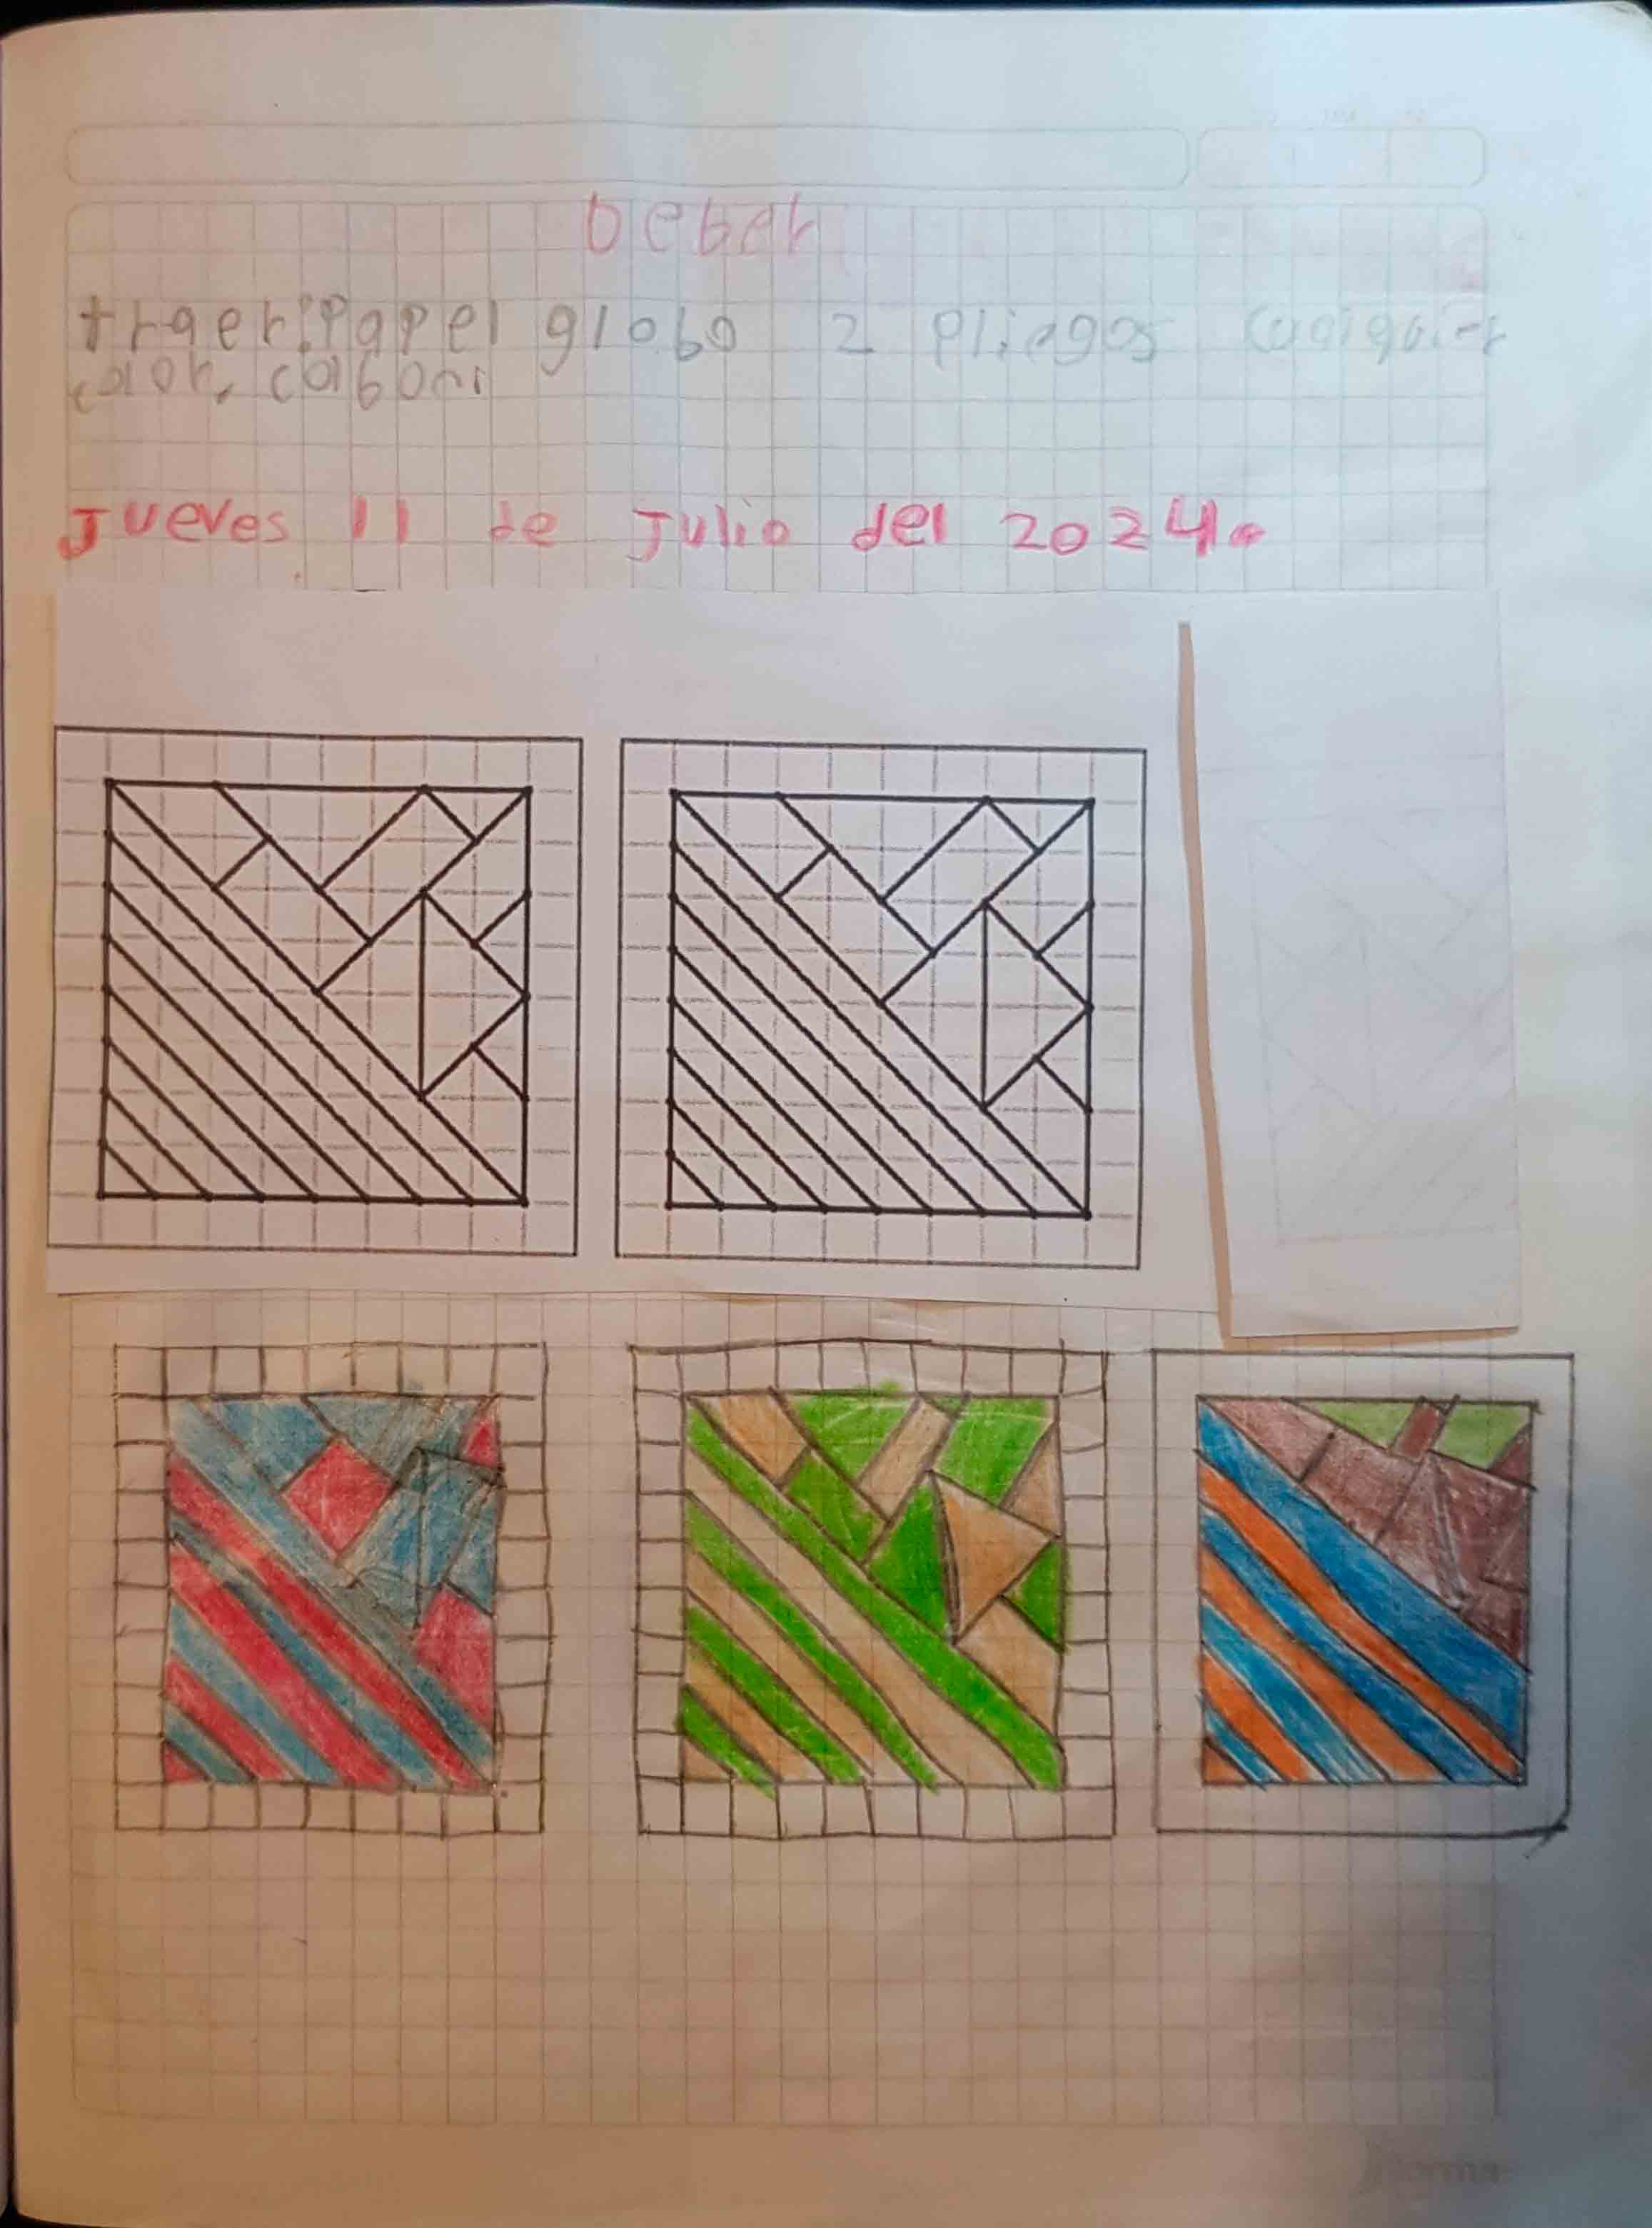 Deber
traer: Papel globo 2 pliegos cualquier
color, carbon
Jueves 11 de Julio del 2024.
norma